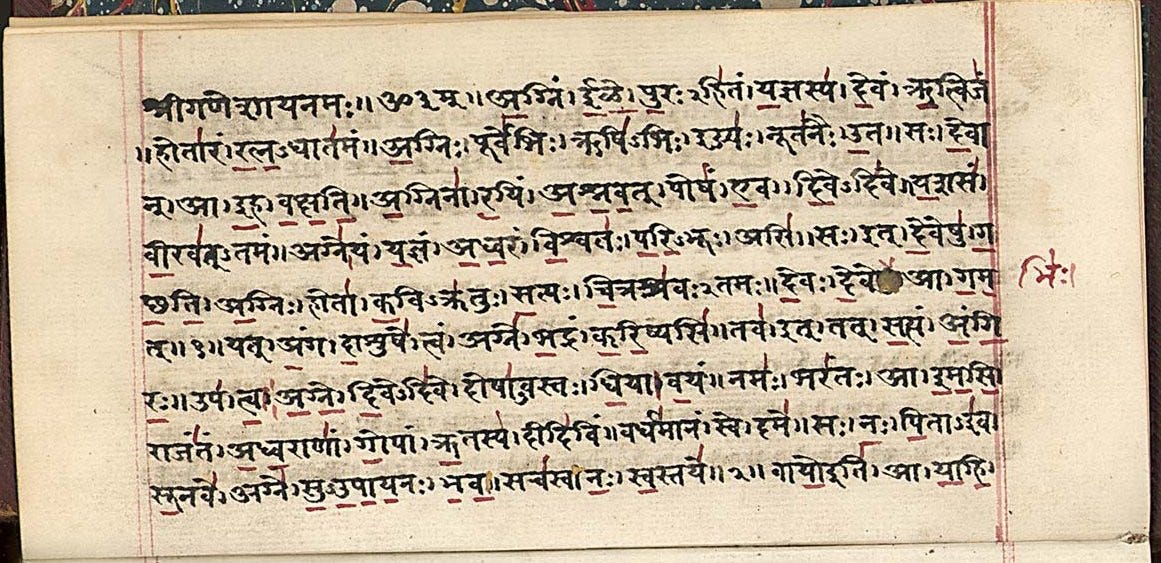 श्रीगणेशायनमः॥ ॐ३म्॥ अ॒ग्निं। ई॒ळे॒। पु॒रः२हि॑तं। य॒ज्ञस्य॑। दे॒वं। ऋ॒त्विजं॑
॥होता॑रं। र॒त्न॒ऽधात॑मं॥ अ॒ग्निः। पूर्वे॑भिः। ऋषि॑ऽभिः। ईड्यः॑। नूत॑नैः। उ॒त॥ सः। दे॒वा
न्। आ। इ॒ह। व॒क्ष॒ति॒॥ अ॒ग्निना॑। र॒यिं। अ॒श्न॒व॒त्। पोषं॑। ए॒व। दि॒वेऽदि॑वे॥ य॒शसं॑
वी॒रव॑त्ऽतमं॥ अग्ने॑। यं। य॒ज्ञं। अ॒ध्व॒रं। वि॒श्वतः॑। प॒रि॒ऽभूः। असि॑॥ सः। इत्। दे॒वेषु॑। ग॒
च्छ॒ति॒। अ॒ग्निः। होता॑। क॒विऽक्र॑तुः। स॒त्यः। चि॒त्रश्र॑वः२तमः॥ दे॒वः। दे॒वे आ। ग॒म॒
भिः॑।
त्॥१॥ यत्। अं॒ग। दा॒शुषे॑। त्वं। अग्ने॑। भ॒द्रं। क॒रि॒ष्यसि॑॥ तव॑। इत्। तत्। स॒त्यं। अं॒गि॒
रः॒॥ उप॑। त्वा॒। अ॒ग्ने॒। दि॒वेऽदि॑वे। दोषा॑ऽवस्तः। धि॒या। व॒यं॥ नमः॑। भरं॑तः। आ। इ॒म॒सि॒
राजं॑तं। अ॒ध्व॒राणां॑। गो॒पां। ऋ॒तस्य॑। दीदि॑विं॥ वर्ध॑मानं। स्वे। दमे॑॥ सः। नः॒। पि॒ताऽइ॑व।
सू॒नवे॑। अग्ने॑। सु॒ऽउ॒पा॒य॒नः। भ॒व॒॥ सच॑स्व। नः॒। स्व॒स्तये॑॥२॥ वायो॒इति॑। आ। या॒हि॒।